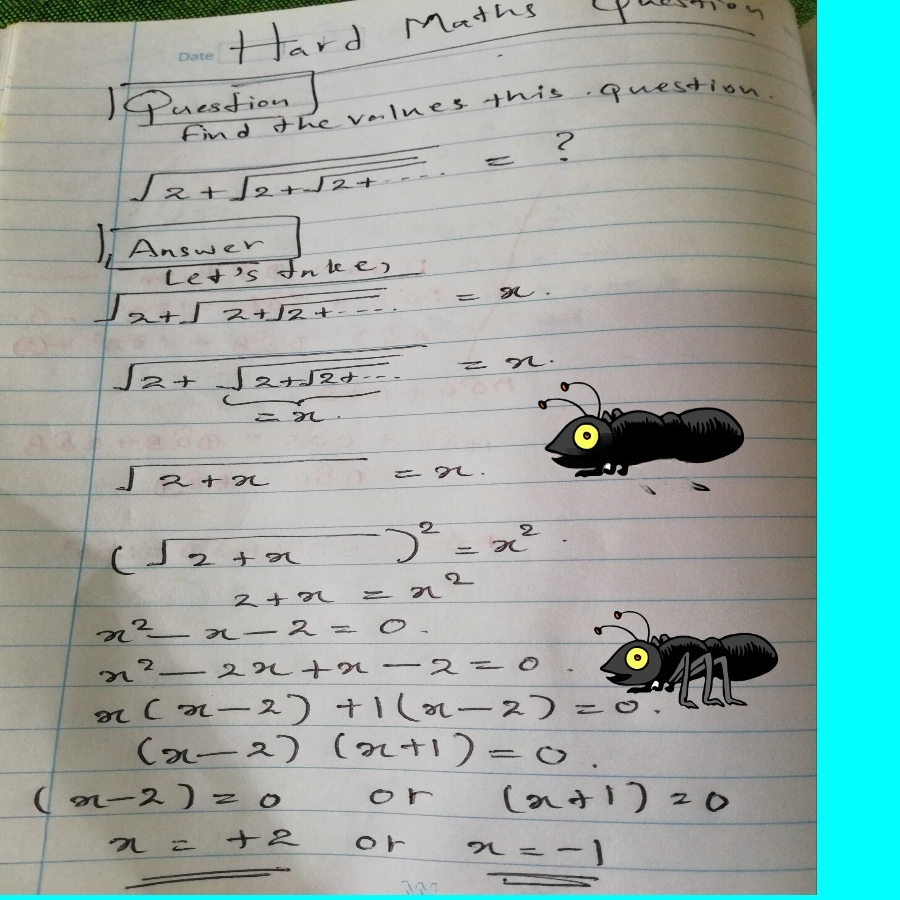 Date Hard Maths Question
1) Question
Find the values this question.
√2+√2+√2+---- = ?
1) Answer
Let's take,
√2+√2+√2+---- = x.
√2+√2+√2+--- = x.
= x.
√2+x = x.
(√2+x)² = x².
2+x = x²
x²-x-2=0.
x²-2x+x-2=0.
x(x-2)+1(x-2)=0.
(x-2)(x+1)=0.
(x-2)=0 or (x+1)=0
x = +2 or x = -1